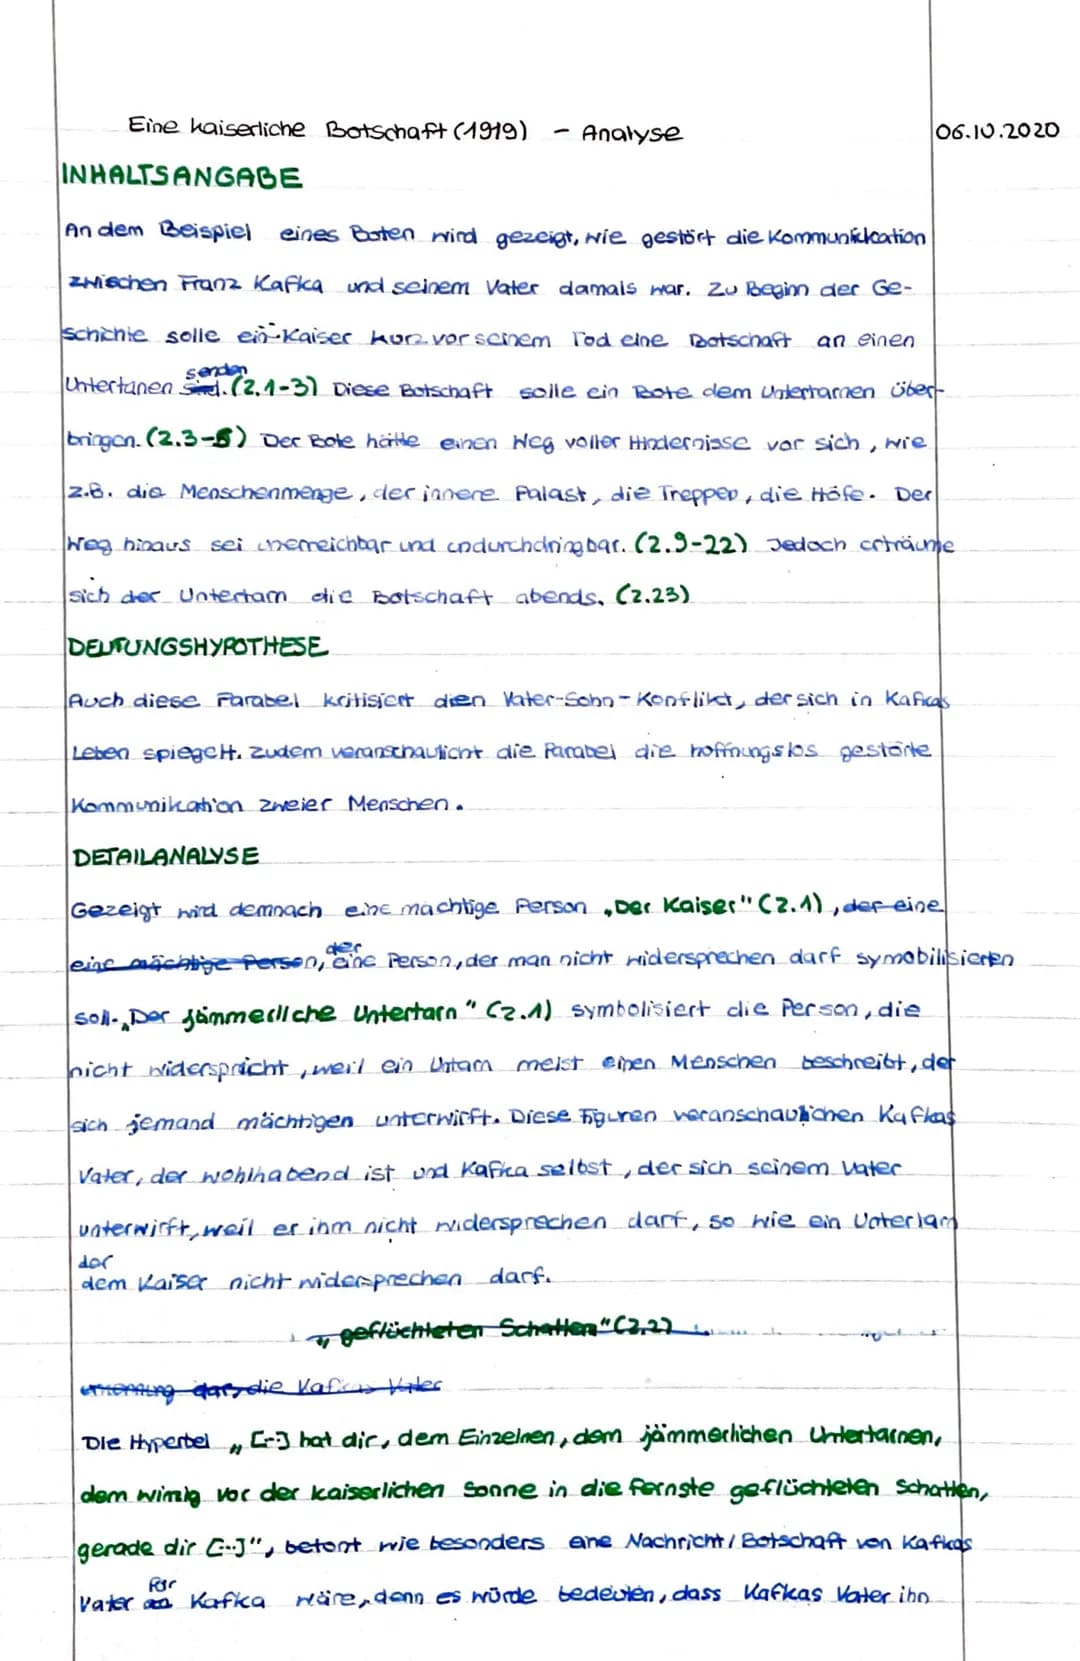 Eine kaiserliche Botschaft (1919) - Analyse 06.10.2020
INHALTSANGABE
An dem Beispiel eines Boten wird gezeigt, wie gestört die Kommunikation
zwischen Franz Kafka und seinem Vater damals war. Zu Beginn der Ge-
schichte solle ein Kaiser kurz vor seinem Tod eine Botschaft an einen
senden
Untertanen sind. (Z.1-3) Diese Botschaft solle ein Bote dem Untertarnen über-
bringen. (Z.3-8) Der Bote hätte einen Weg voller Hindernisse vor sich, wie
z.B. die Menschenmenge, der innere Palast, die Treppen, die Höfe. Der
Weg hinaus sei unerreichbar und undurchdringbar. (Z.9-22) Jedoch erträume
sich der Untertarn die Botschaft abends. (Z.23)
DEUTUNGSHYPOTHESE
Auch diese Parabel kritisiert den Vater-Sohn-Konflikt, der sich in Kafkas
Leben spiegelt. Zudem veranschaulicht die Parabel die hoffnungslos gestörte
Kommunikation zweier Menschen.
DETAILANALYSE
Gezeigt wird demnach eine mächtige Person „Der Kaiser" (Z.1), der eine
der
eine mächtige Person, eine Person, der man nicht widersprechen darf symobilisieren
soll. „Der jämmerliche Untertarn" (Z.1) symbolisiert die Person, die
nicht widerspricht, weil ein Untarn meist einen Menschen beschreibt, der
sich jemand mächtigen unterwirft. Diese Figuren veranschaulichen Kafkas
Vater, der wohlhabend ist und Kafka selbst, der sich seinem Vater
unterwirft, weil er ihm nicht widersprechen darf, so wie ein Untertarn
der
dem Kaiser nicht widersprechen darf.
„geflüchteten Schatten" (Z.2)
dar, die Kafkas Vater
Die Hyperbel „[...] hat dir, dem Einzelnen, dem jämmerlichen Untertarnen,
dem winzig vor der kaiserlichen Sonne in die fernste geflüchteten Schatten,
gerade dir [...]", betont wie besonders eine Nachricht/Botschaft von Kafkas
für
Vater an Kafka wäre, denn es würde bedeuten, dass Kafkas Vater ihn